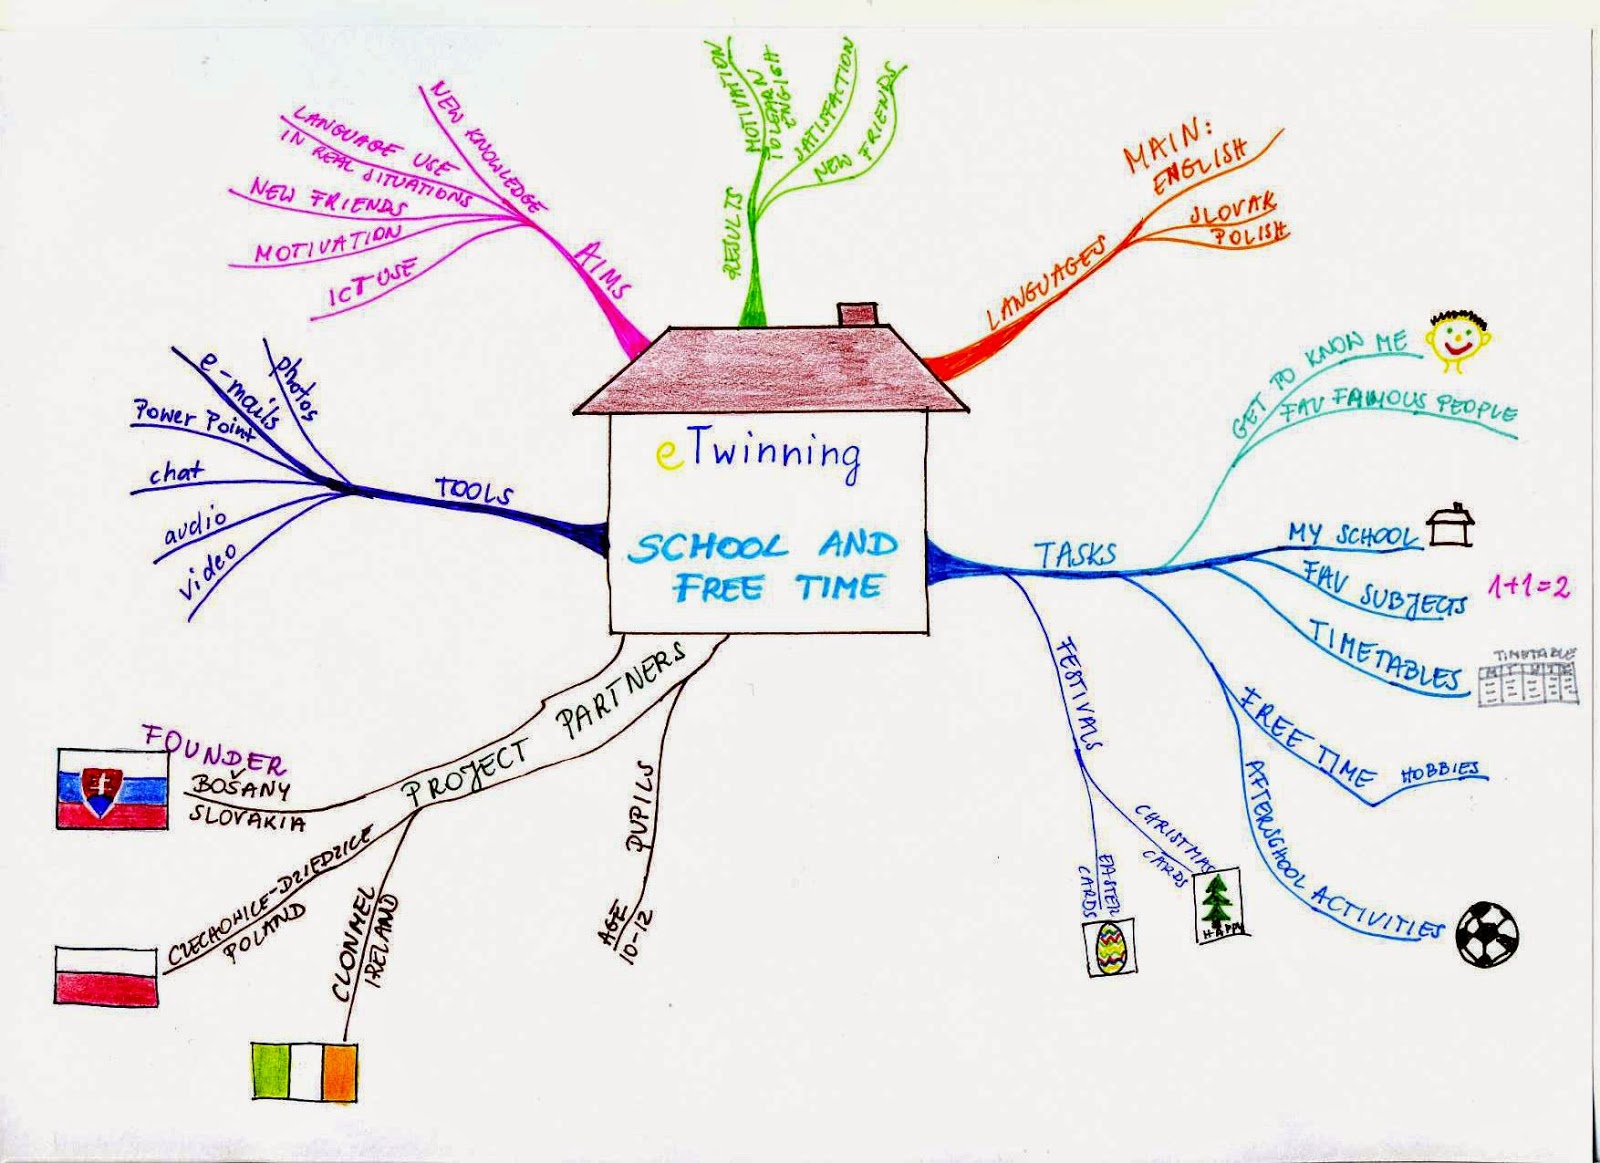 eTwinning
SCHOOL AND
FREE TIME
AIMS
NEW KNOWLEDGE
LANGUAGE USE
IN REAL SITUATIONS
NEW FRIENDS
MOTIVATION
ICT USE
RESULTS
MOTIVATION
TO LEARN
ENGLISH
SATISFACTION
NEW FRIENDS
LANGUAGES
MAIN:
ENGLISH
SLOVAK
POLISH
TASKS
GET TO KNOW ME
FAV FAMOUS PEOPLE
MY SCHOOL
FAV SUBJECTS
1+1=2
TIMETABLES
TIMETABLE
FREE TIME
HOBBIES
AFTERSCHOOL ACTIVITIES
FESTIVALS
CHRISTMAS
CARDS
HAPPY
EASTER
CARDS
PROJECT PARTNERS
PUPILS
AGE
10-12
FOUNDER
BOŠANY
SLOVAKIA
CZECHOWICE-DZIEDZICE
POLAND
CLONMEL
IRELAND
TOOLS
photos
e-mails
Power Point
chat
audio
video